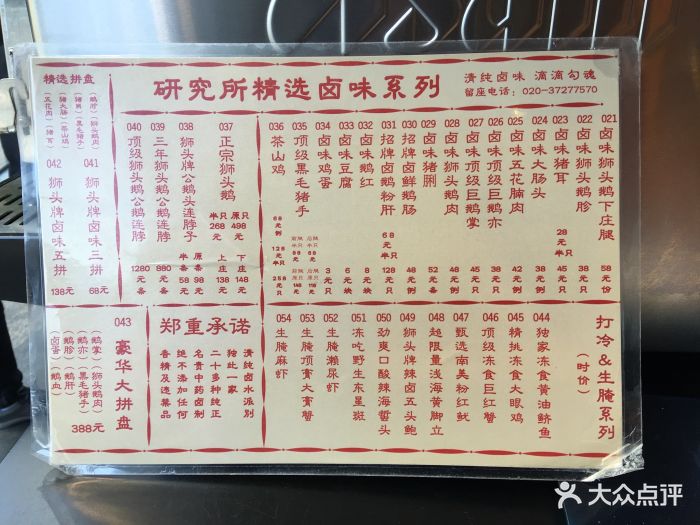 研究所精选卤味系列
清纯卤味 滴滴勾魂
留座电话:020-37277570
021 卤味狮头鹅下庄腿 58元份
022 卤味狮头鹅胗 38元只
023 卤味猪耳 28元半只 45元只
024 卤味大肠头 38元例
025 卤味五花腩肉 42元例
026 顶级卤味巨鹅亦 38元只
027 顶级卤味巨鹅掌 45元只
028 卤味狮头鹅肉 48元例
029 卤味猪脷 52元条
030 招牌卤鲜鹅肠 48元例
031 招牌卤鹅粉肝 68元半只 128元只
032 卤味鹅红 8元块
033 卤味豆腐 6元块
034 卤味鸡蛋 3元只
035 顶级黑毛猪手
036 茶山鸡 68元例 128元半只 258元只
037 正宗狮头鹅 原只498元 半只268元 下庄148元 上庄138元
038 狮头牌公鹅头连脖子 原条98元 半条58元
039 三年狮头鹅公鹅连脖 880元条
040 顶级狮头鹅公鹅连脖 1280元条
精选拼盘
(鹅胗)(狮头鹅肉)
(猪脷)(黑毛猪手)
(猪大肠)(茶山鸡)
(五花肉)(猪耳)
041 狮头牌卤味三拼 68元
042 狮头牌卤味五拼 138元
打冷&生腌系列
(时价)
044 独家冻食黄油䱽鱼
045 精挑冻食大眼鸡
046 顶级冻食巨红蟹
047 甄选南美粉红魷
048 超限量浅海黄脚立
049 狮头牌辣卤五头鲍
050 劲爽口酸辣海蜇头
051 冻吃野生东星斑
052 生腌濑尿虾
053 生腌顶膏大膏蟹
054 生腌麻虾
郑重承诺
清纯卤水派别
独此一家
二十多种纯正
名贵中药卤制
绝不添加任何
香精及违禁品
043 豪华大拼盘
(鹅掌)(狮头鹅肉)
(鹅亦)(黑毛猪手)
(鹅胗)(鹅肝)
(卤蛋)(鹅血)
388元
大众点评